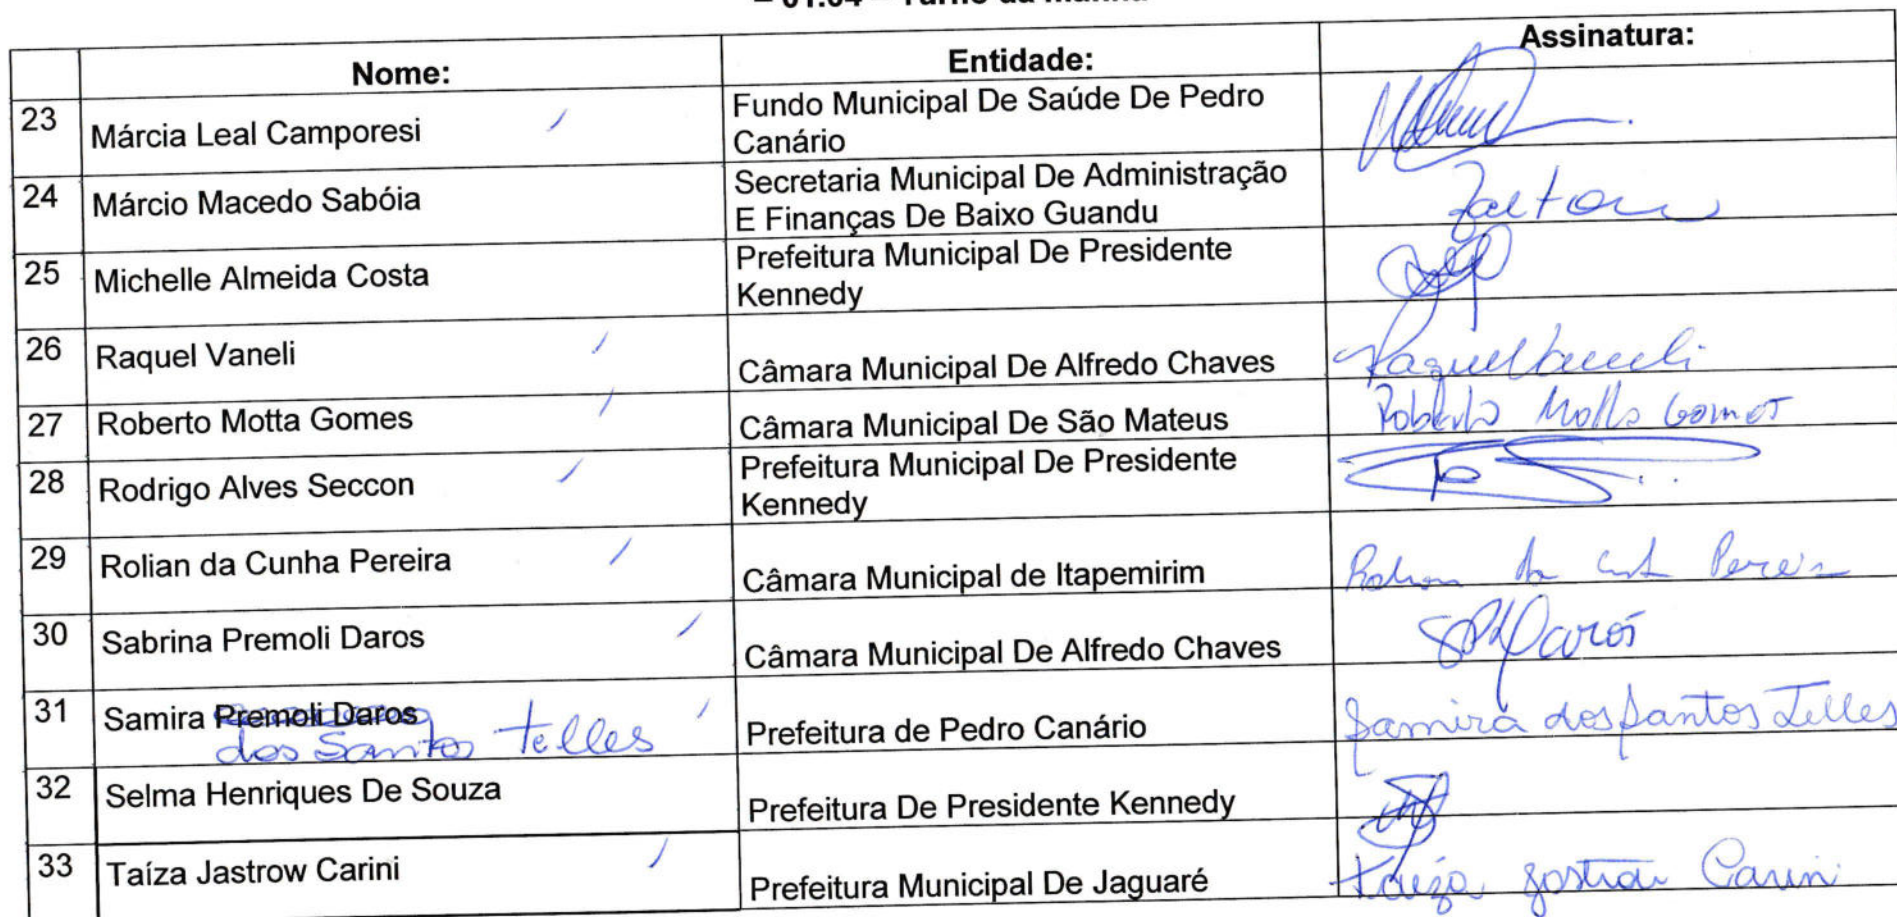 – 01.04 – Turno da manhã
Nome: Entidade: Assinatura:
23 Márcia Leal Camporesi Fundo Municipal De Saúde De Pedro
Canário
24 Márcio Macedo Sabóia Secretaria Municipal De Administração
E Finanças De Baixo Guandu
25 Michelle Almeida Costa Prefeitura Municipal De Presidente
Kennedy
26 Raquel Vaneli Câmara Municipal De Alfredo Chaves Raquel Vaneli
27 Roberto Motta Gomes Câmara Municipal De São Mateus Roberto Motta Gomes
28 Rodrigo Alves Seccon Prefeitura Municipal De Presidente
Kennedy
29 Rolian da Cunha Pereira Câmara Municipal de Itapemirim Rolian da Cunha Pereira
30 Sabrina Premoli Daros Câmara Municipal De Alfredo Chaves Daros
31 Samira Premoli Daros Prefeitura de Pedro Canário Samira dos Santos Telles
dos Santos Telles
32 Selma Henriques De Souza Prefeitura De Presidente Kennedy
33 Taíza Jastrow Carini Prefeitura Municipal De Jaguaré Taíza Jastrow Carini